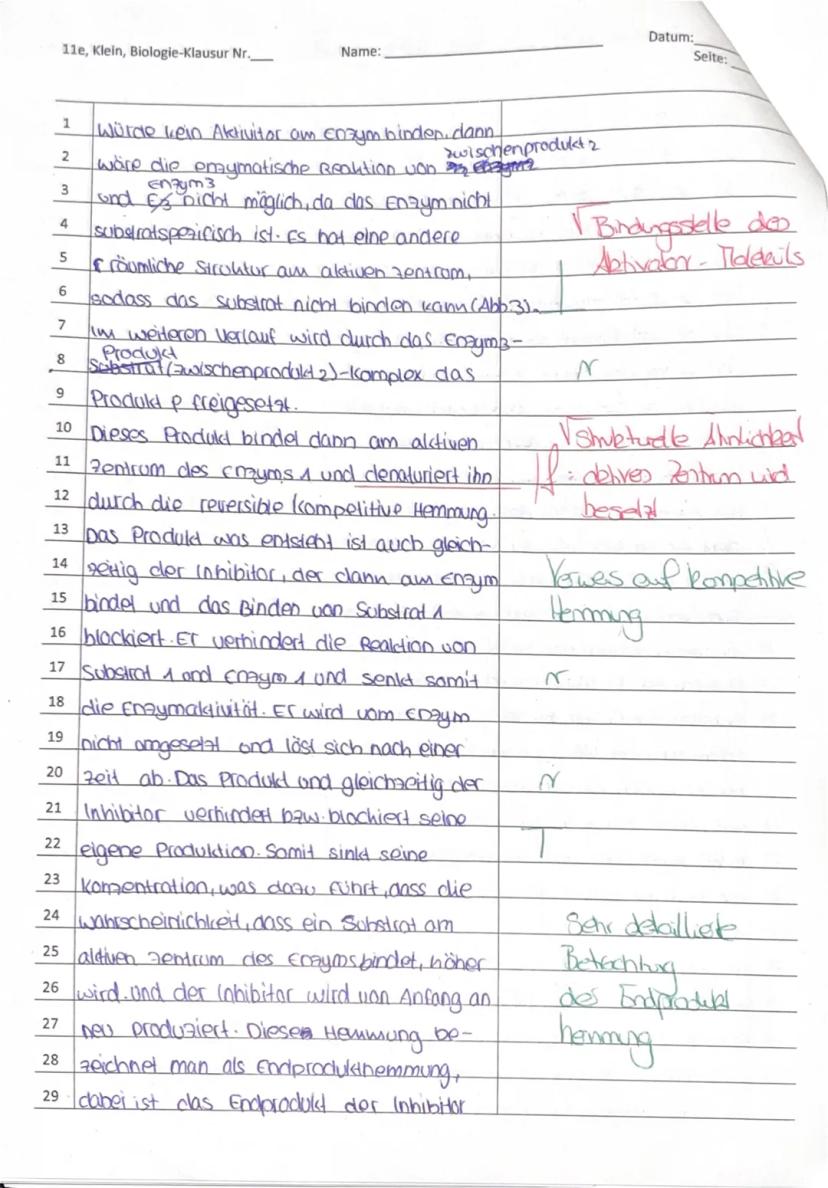 11e, Klein, Biologie-Klausur Nr.___ Name: ___ Datum:___
Seite: ___
1 Würde kein Aktivitor am Enzym binden, dann
zwischenprodukt 2
2 wäre die enzymatische Reaktion von
enzym3
3 und nicht möglich, da das Enzym nicht
4 substratspezifisch ist. Es hat eine andere
√ Bindungsstelle des
5 räumliche Struktur am aktiven zentrum,
Aktivator-Moleküls
6 sodass das substrat nicht binden kann (Abb 3).
7 Im weiteren Verlauf wird durch das Enzym3-
Produkt
8 Substrat (zwischenprodukt 2)-Komplex das
9 Produkt P freigesetzt.
10 Dieses Produkt bindet dann am aktiven √ strukturelle Ähnlichkeit
11 zentrum des enzyms 1 und denaturiert ihn f: aktives Zentrum wird
12 durch die reversible kompetitive Hemmung. besetzt
13 Das Produkt was entsteht ist auch gleich-
14 zeitig der Inhibitor, der dann am Enzym Verweis auf kompetitive
15 bindet und das Binden von Substrat 1 Hemmung
16 blockiert. Er verhindert die Reaktion von
17 Substrat 1 und Enzym 1 und senkt somit
18 die Enzymaktivität. Er wird vom Enzym
19 nicht umgesetzt und löst sich nach einer
20 Zeit ab. Das Produkt und gleichzeitig der
21 Inhibitor verhindert bzw. blockiert seine
22 eigene Produktion. Somit sinkt seine
23 Konzentration, was dazu führt, dass die
24 wahrscheinlichkeit, dass ein Substrat am Sehr detaillierte
25 aktiven zentrum des Enzyms bindet, höher Betrachtung
26 wird. und der Inhibitor wird von Anfang an des Endprodukt
27 neu produziert. Diese Hemmung be- hemmung
28 zeichnet man als Endprodukthemmung,
29 dabei ist das Endprodukt der Inhibitor